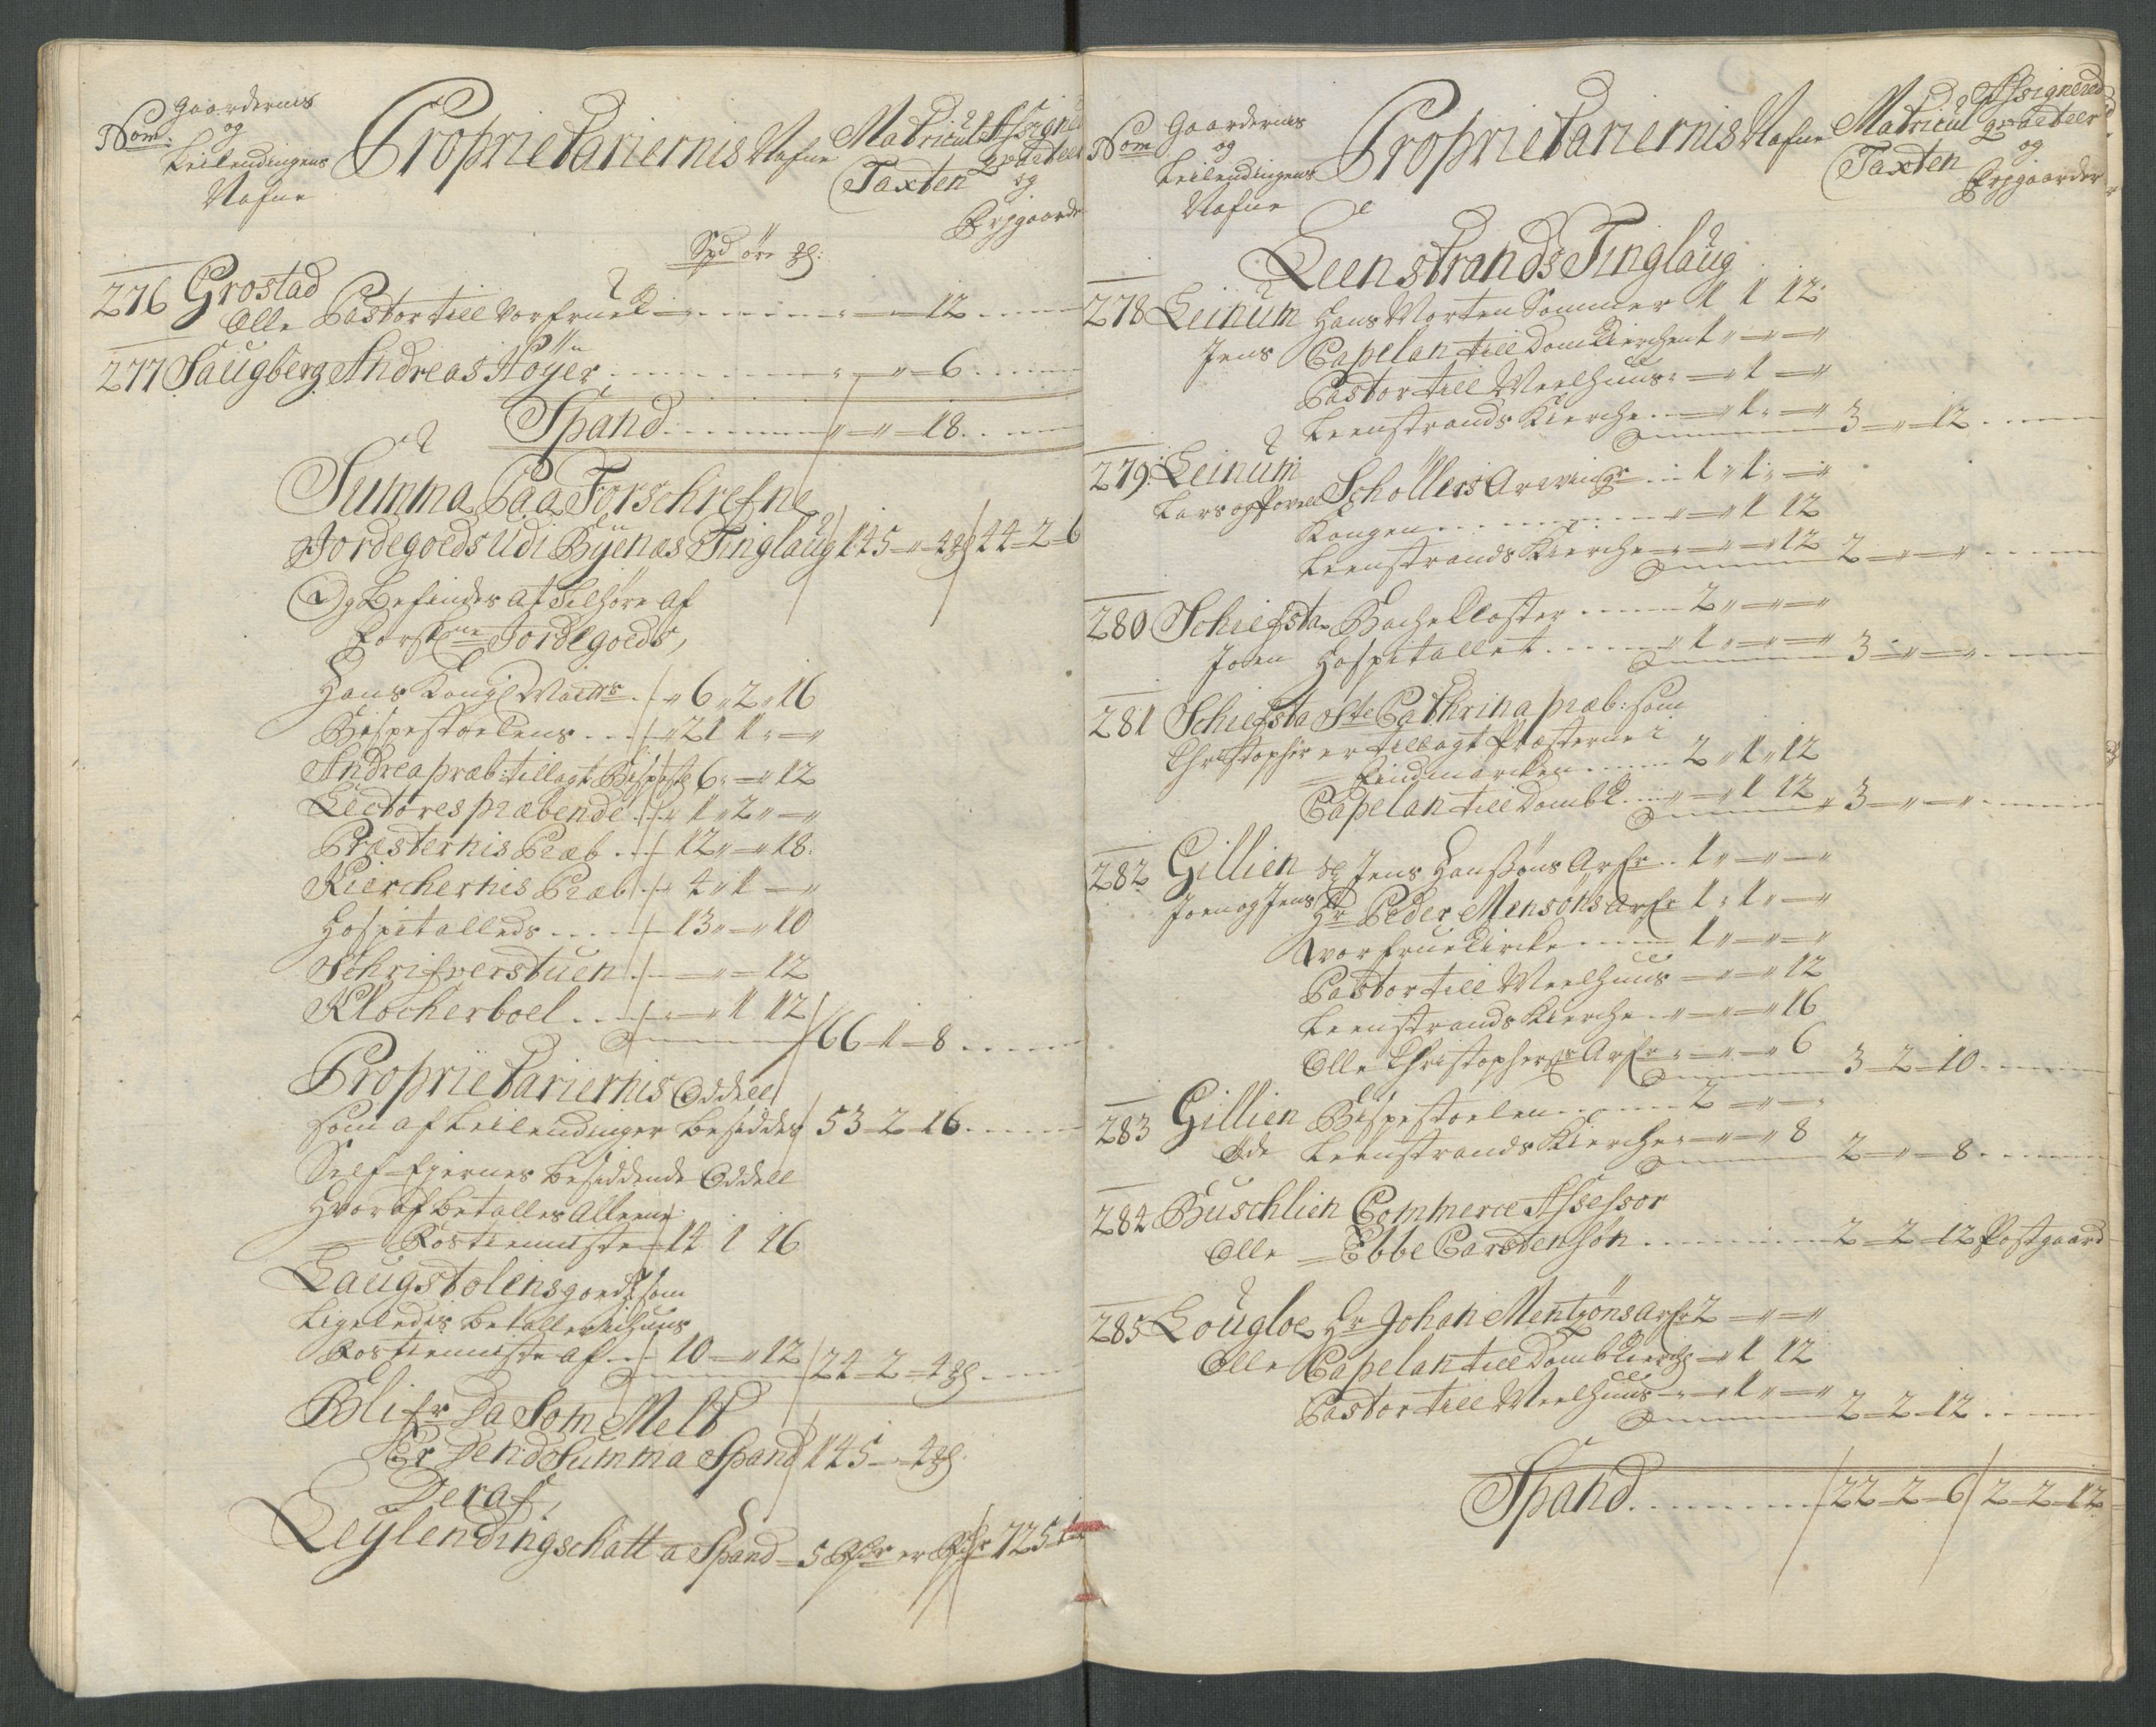 Nom. Gaardernis og Leilendingens Nafne
Proprietariernis Nafne
Matricul Taxten
Assigne qvarteer og Ersgaarde
Spd öre
276 Grostad
Olle Pastor till Vorfrue K 12
277 Saugberg Andreas Höyer 6
Spand 18
Summa Paa Forschrefne
Jordegoeds Udi Byenæs Tinglaug 145 - 4 44-2-6
Og Befindes at Tilhöre af
Forskne Jordegoeds,
Hans Kongl Maitts 6 2 16
Bispestoelens 21 1
Andrea præb: tillagt Bispest 6 12
Lectores præbende 1 2
Præsternis Præb 12 18
Kierchernis Præb 4 1
Hospitalleds 13 10
Schrifverstuen 12
Klocherboel 1 12
66 8
Proprietariernis Oddell
som af Leilendinger besiddes 53-2-16
Self-Ejernes besiddende Oddell
Hvoraf betalles Alleene
Rostienniste 14 1 16
Laugstolens goeds som
Ligeledis betaller
Rostienniste af 10 12 24-2-4
Blifr Da Som Melt
Er Dend Summa Spand 145 4
Deraf,
Leylendingschatt a Spand 5 er 725
Nom Gaardernis og Leilendingens Nafne
Proprietariernis Nafne
Matricul Taxten
Assigneret qvarteer og Ersgaarder
Leenstrands Tinglaug
278 Leinum Hans Morten Sommer 1 1 12
Jens Capelan till Domkierchen 1
Pastor till Meelhuus 1
Leenstrands Kierche 1 3 12
279 Leinum
Lars og Povel Schöllers Arvinge 1 1
Kongen 1 12
Leenstrands Kierche 12 2
280 Schiefsta Bachekloster 2
Joen Hospitallet 1 3
281 Schiefsta Ste Cathrina præb: som
Christopher er tillagt Præsterne i
Findmarcken 2 1 12
Capelan till Domk 1 12 3
282 Gillien Sl Jens Hanssöns Arfr 1
Joen og Jens Hr Peder Mensöns Arfr 1 1
Vorfrue Kircke 1
Pastor till Meelhuus 12
Leenstrands Kierche 16
Olle Christophers Arfr 6 3 2 10
283 Gillien Bispestoelen 2
Ode Leenstrands Kierche 8 2 8
284 Buschlien Commerce Assessor
Olle Ebbe Carstensön 2 2 12 Postgaard
285 Lougloe Hr Johan Mentzöns Arfr 2
Olle Capelan till Domb Kierch 1 12
Pastor till Meelhuus 1 2 2 12
Spand 22-2-6 2-2-12